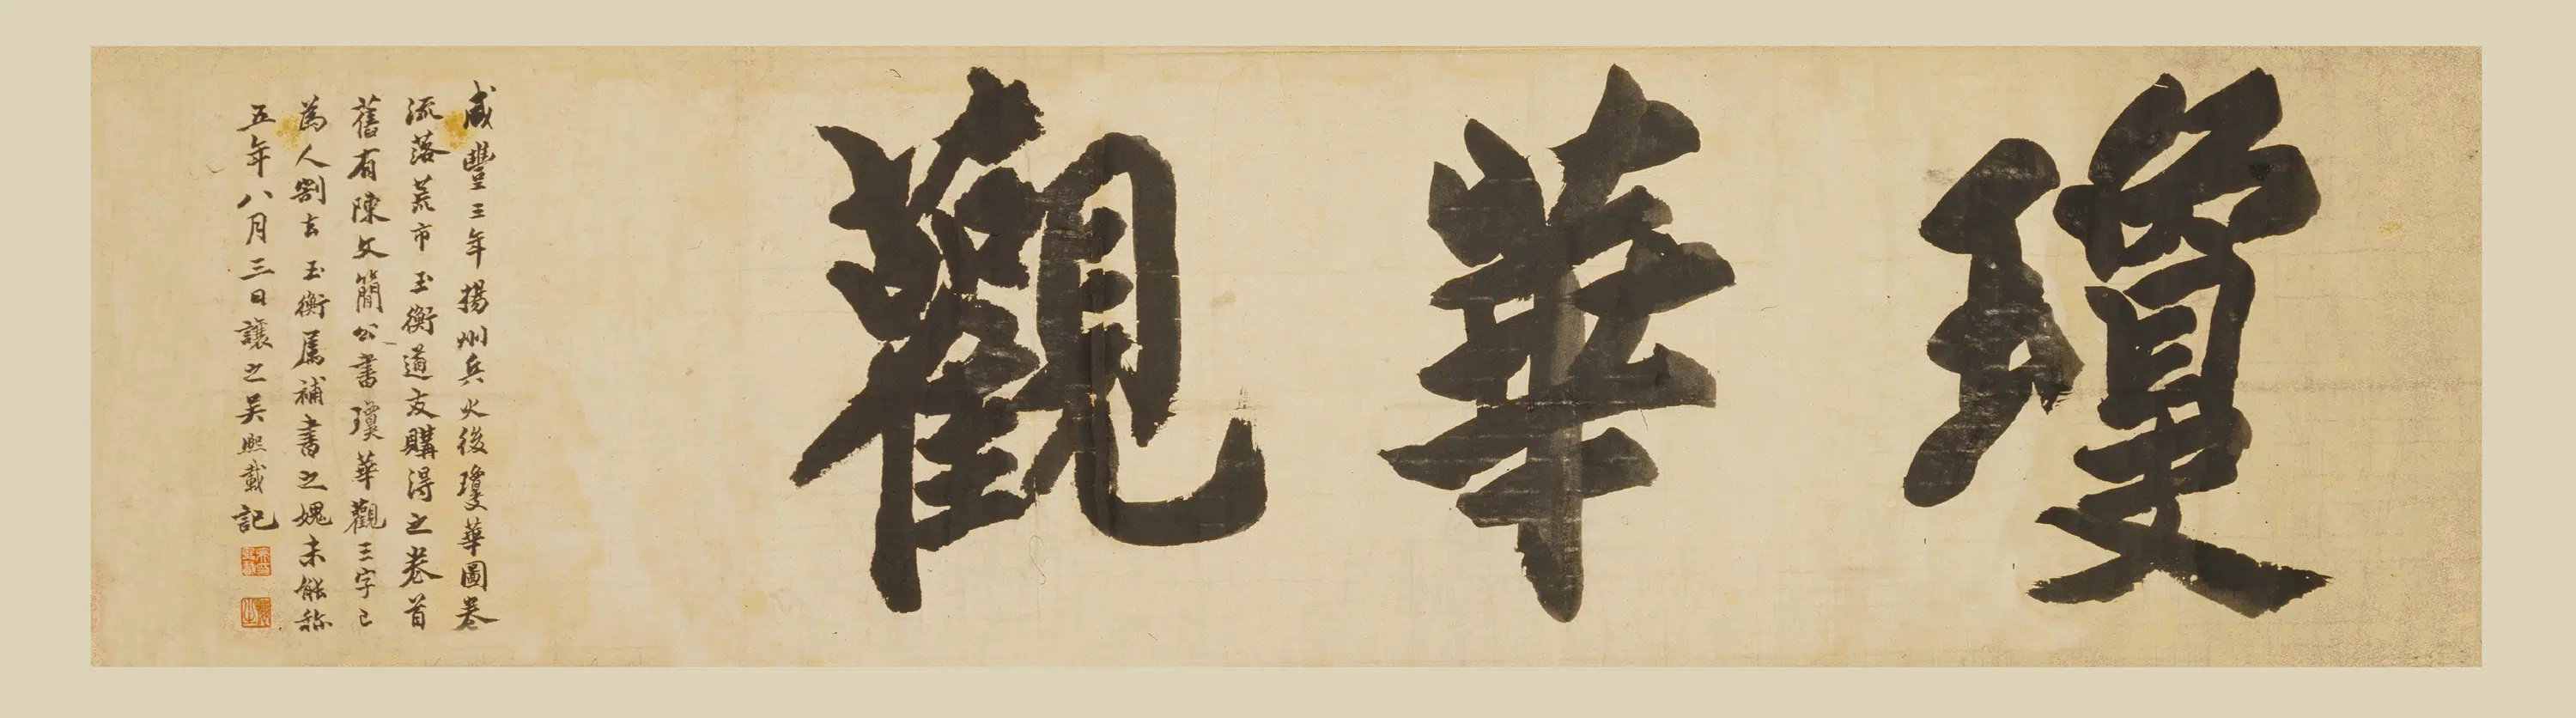 瓊華觀
咸豐三年揚州兵火後瓊華圖卷
流落荒市玉衡道友購得之卷首
舊有陳文簡公書瓊華觀三字已
為人割去玉衡屬補書之媿未能稱
五年八月三日讓之吳熙載記